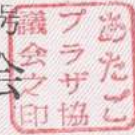 あたご
プラザ協
議会之印
会